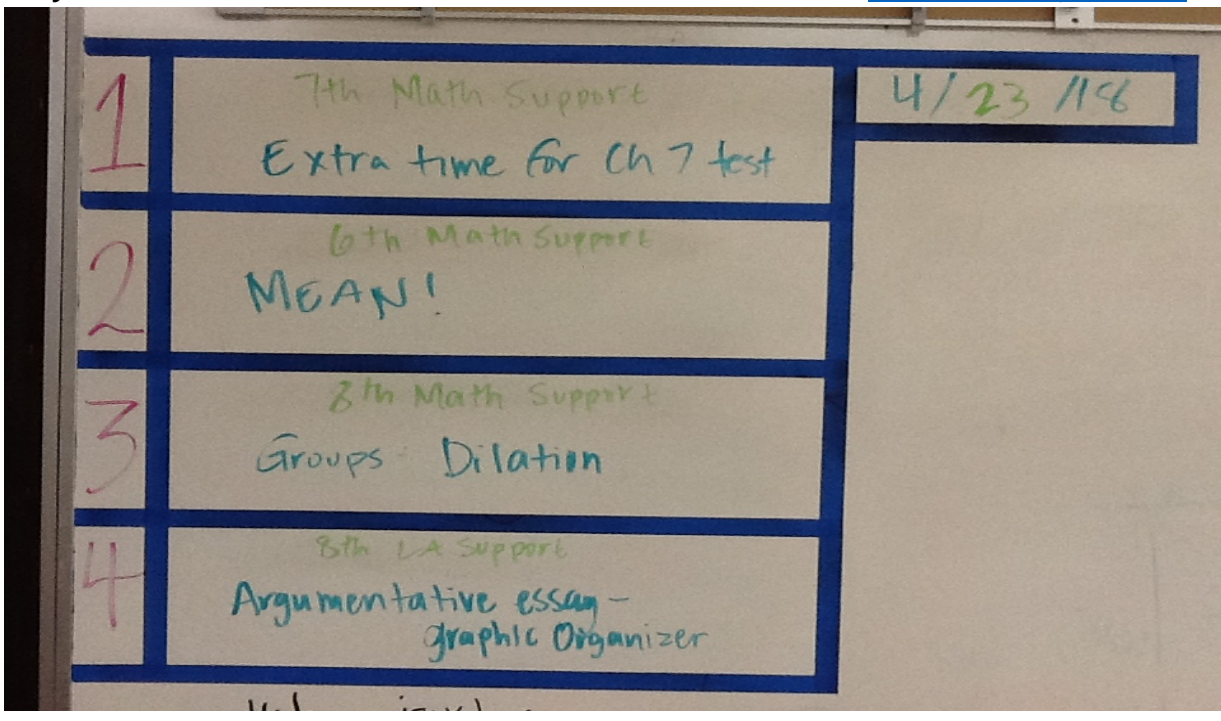 1
7th Math Support
4/23/18
Extra time for Ch 7 test
2
6th Math Support
MEAN!
3
8th Math Support
Groups Dilation
4
8th LA Support
Argumentative essay-
graphic Organizer